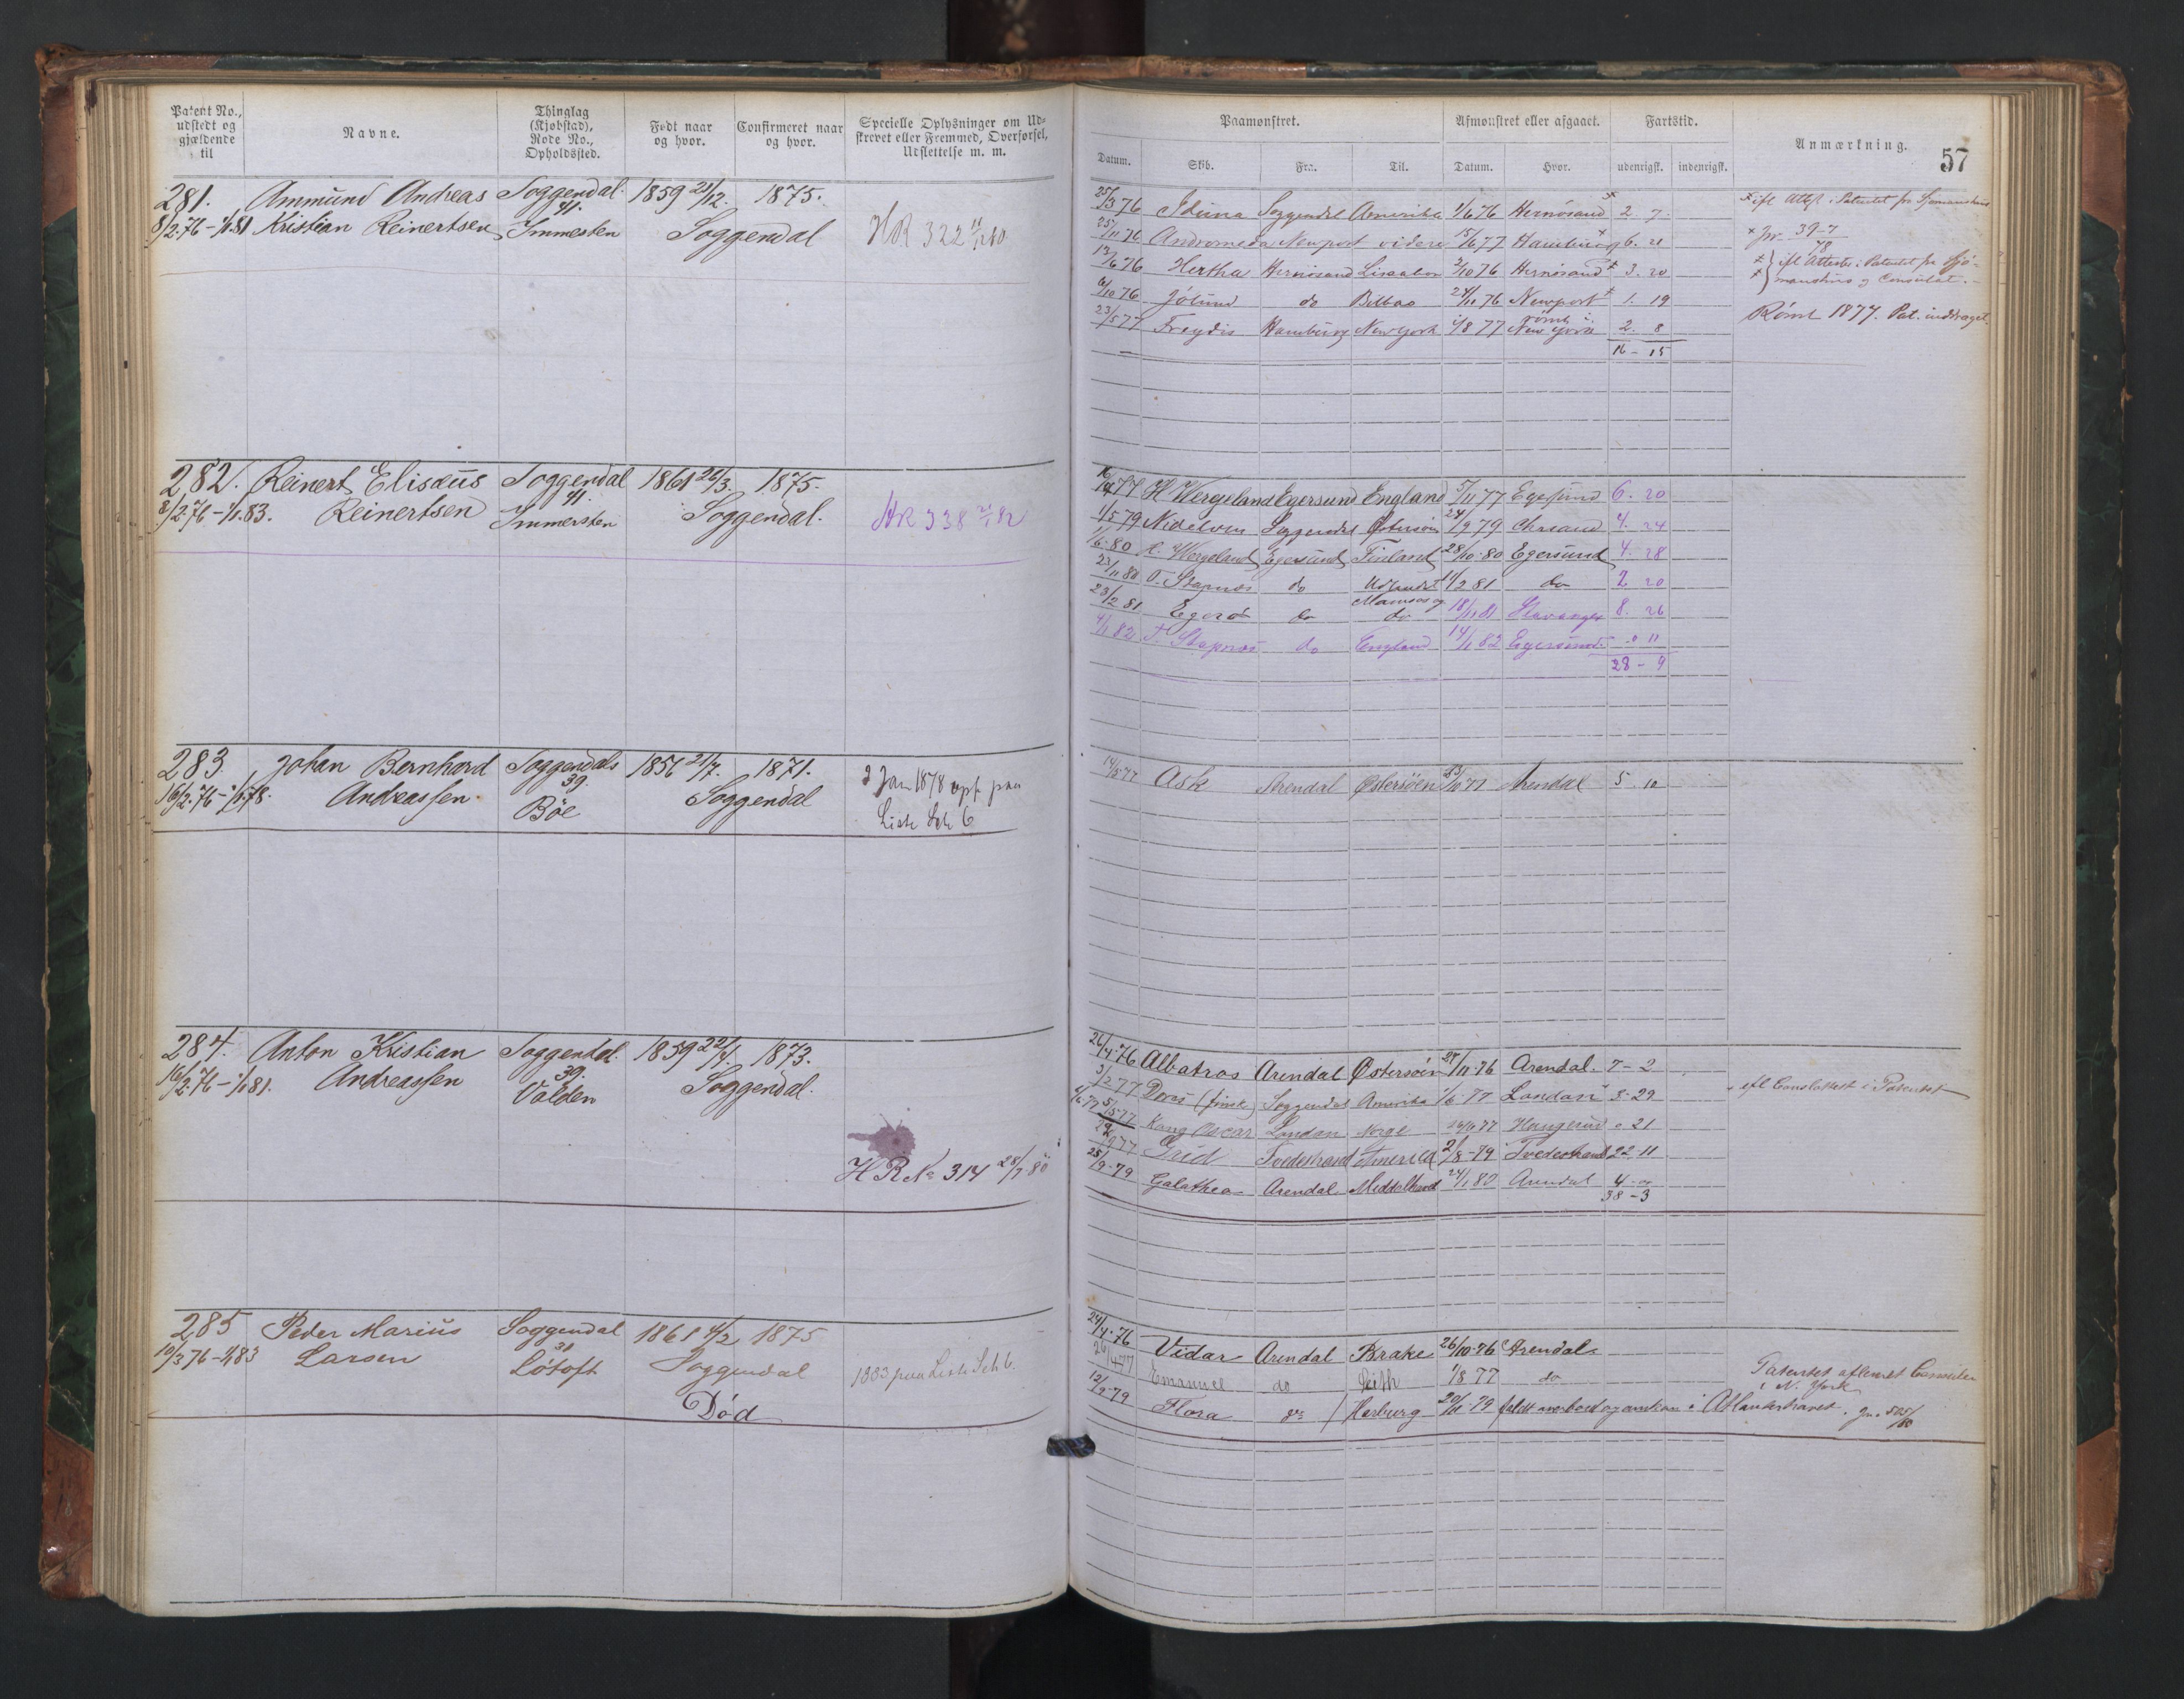 Patent No., udstedt og gjældende til
Navne.
Thinglag (Kjøbstad), Rode No., Opholdssted.
Født naar og hvor.
Confirmeret naar og hvor.
Specielle Oplysninger om Udskrevet eller Fremmed, Overførsel, Udslettelse m. m.
281. Ammund Andreas Soggendal. 1859 21/12. 1875.
41.
8/2.76 - 1/1.81 Kristian Reinertsen Immesten Soggendal
282. Reinert Elisæus Soggendal 1861 26/3. 1875.
41.
8/2.76 - 1/1.83. Reinertsen Immersten Soggendal. HR 338 82
283. Johan Bernhard Soggendals 1856 21/7. 1871. 2 Jan 1878 opf. paa
39.
16/2.76 - 1/1.78. Andreassen. Bøe Soggendal Liste Lth 6
284. Anton Kristian Soggendal. 1859 22/4. 1873.
39.
16/2.76 - 1/1.81. Andreassen Valden Soggendal.
H R No 314 28/7.80
285 Peder Marius Soggendal 1861 4/2 1875
10/3 76 - 1/1.83 Larsen Løtoft Soggendal 1883 paa Liste Lth 6.
Død
Paamønstret.
Afmønstret eller afgaaet.
Fartstid.
Anmærkning. 57
Datum. Skb. Fra. Til. Datum. Hvor. udenrigsk. indenrigsk.
25/3 76 Iduna Soggendal Amerika 1/6 76 Hernösand 2. 7.
25/11 76 Andromeda Newport videre 15/6 77 Hamburg 6. 21
12/6 76 Hertha Hernösand Lissabon 2/10 76 Hernösand 3. 20
6/10 76 Jötund do Bilbao 24/11 76 Newport 1. 19
23/5 77 Freydis Hamburg New York 1/8 77 rømt i New York 2. 8
16 - 15
ifl Attest i Patentet fra Sjømandshus
Jr. 39-7/78
ifl Attester i Patentet fra Sjømandshus og Consulat.
Rømt 1877. Pat. inddraget.
16/4 77 H Wergeland Egersund England 5/11 77 Egersund 6. 20
1/5 79 Nidelven Soggendal Østersøen 24/9 79 Chrsand 4. 24
1/6.80 H. Wergeland Egersund Finland 28/10.80 Egersund 4. 28
23/11 80 T. Stapnæs do Udlandet 11/2 81 do 2 20
23/2 81 Egerø do do 18/11 81 Stavanger 8. 26
4/1 82 T Stapnæs do England 14/1 82 Egersund. 0 11
28 - 9
14/5 77 Ask Arendal Østersøen 23/10 77 Arendal 5. 10
26/4.76 Albatros Arendal Østersøen 28/11.76 Arendal. 7 - 2
3/2 77 Doris (finsk) Soggendal Amerika 1/6.77 London 3. 29
efl Conslattest i Patentet
Kong Oscar London Norge 26/6 77 Haugesund 0 21
Grid Tvedestrand Amerika 2/8-79 Tvedestrand 22 11
25/9-79 Galathea Arendal. Middelhavet 24/1 80 Arendal 4 - 0
38 - 3
24/4.76 Vidar Arendal Brake 26/10.76 Arendal.
26/4 77 Emanuel do Leith 1/8 77 do
Patentet afleveret Consulen i N. York
12/9-79 Flora do Harburg 20/11-79 faldt overbord og omkom i Atlanterhavet. Jn. 505/80